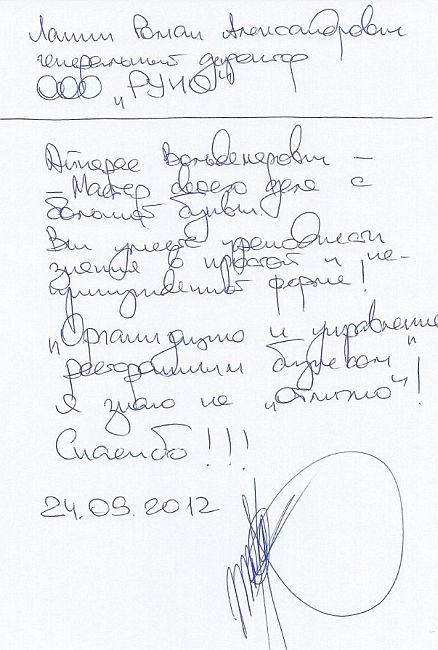 Лапин Роман Александрович
генеральный директор
ООО „РУНО"
Вольдемарович –
– Мастер своего дела с
большой буквы.
Вы умеете преподнести
знания в простой и не-
принужденной форме!
„Организацию и управление
ресторанным бизнесом"
я знаю на „отлично"!
Спасибо!!!
24.09.2012